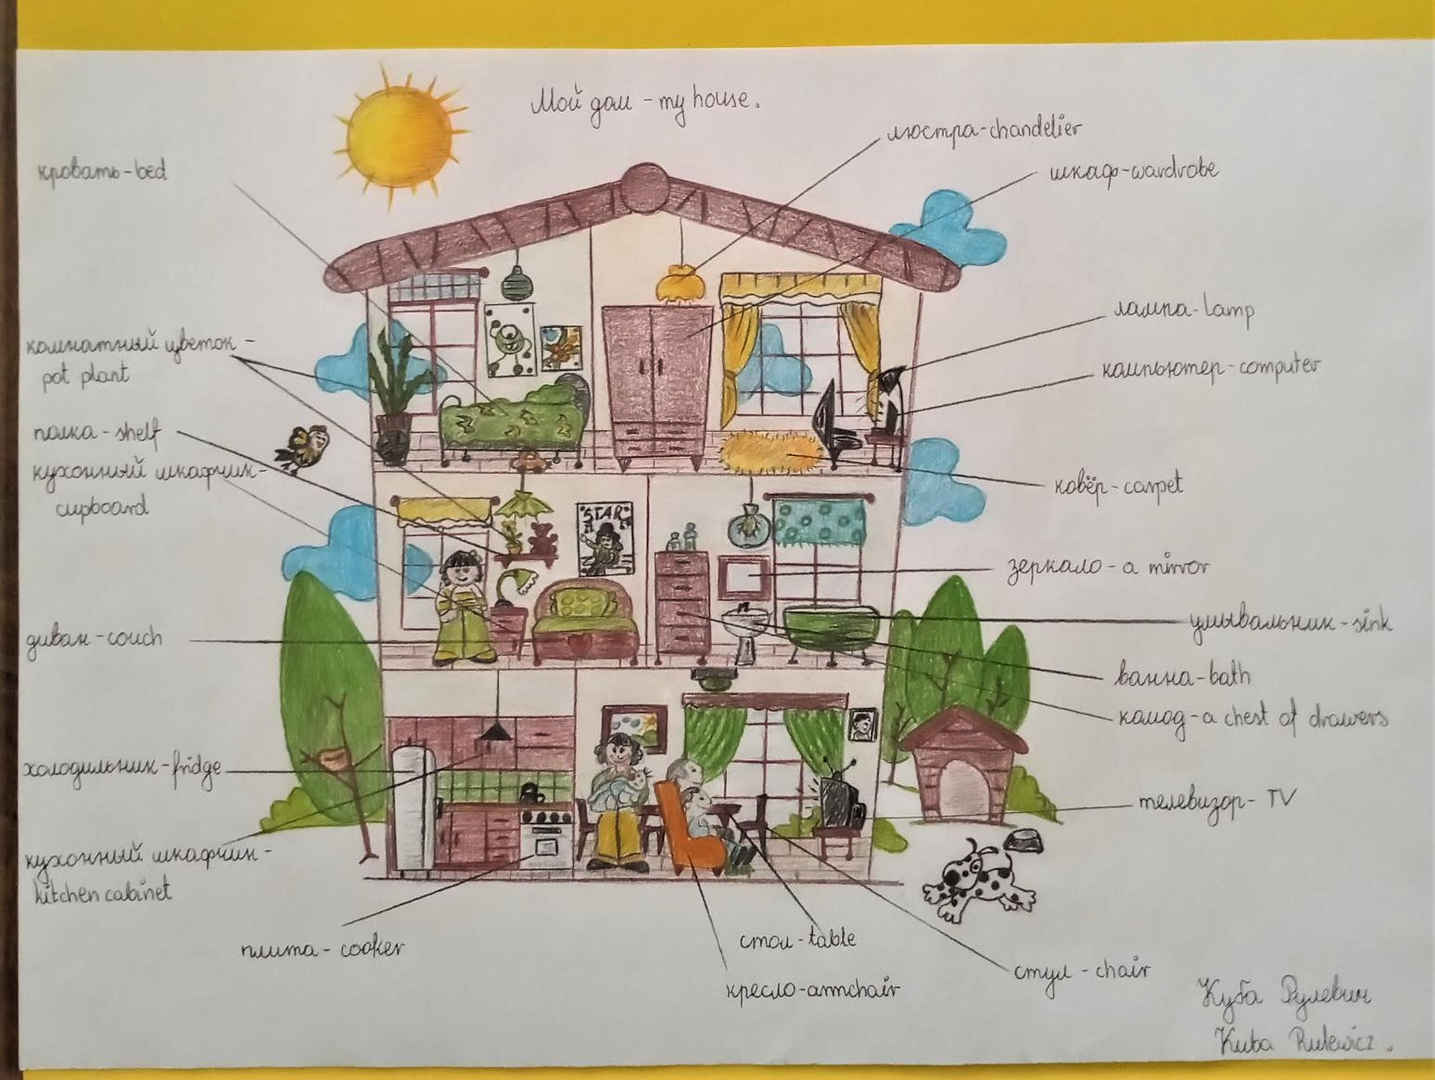 Мой дом - my house.
люстра-chandelier
кровать-bed
шкаф-wardrobe
лампа-lamp
комнатный цветок -
pot plant
компьютер-computer
полка-shelf
кухонный шкафчик-
cupboard
ковёр-carpet
STAR
зеркало-a mirror
умывальник-sink
диван-couch
ванна-bath
комод-a chest of drawers
холодильник-fridge
телевизор-TV
кухонный шкафчик-
kitchen cabinet
плита-cooker
стол-table
стул-chair
кресло-armchair
Куба Рулевич
Kuba Rulewicz.